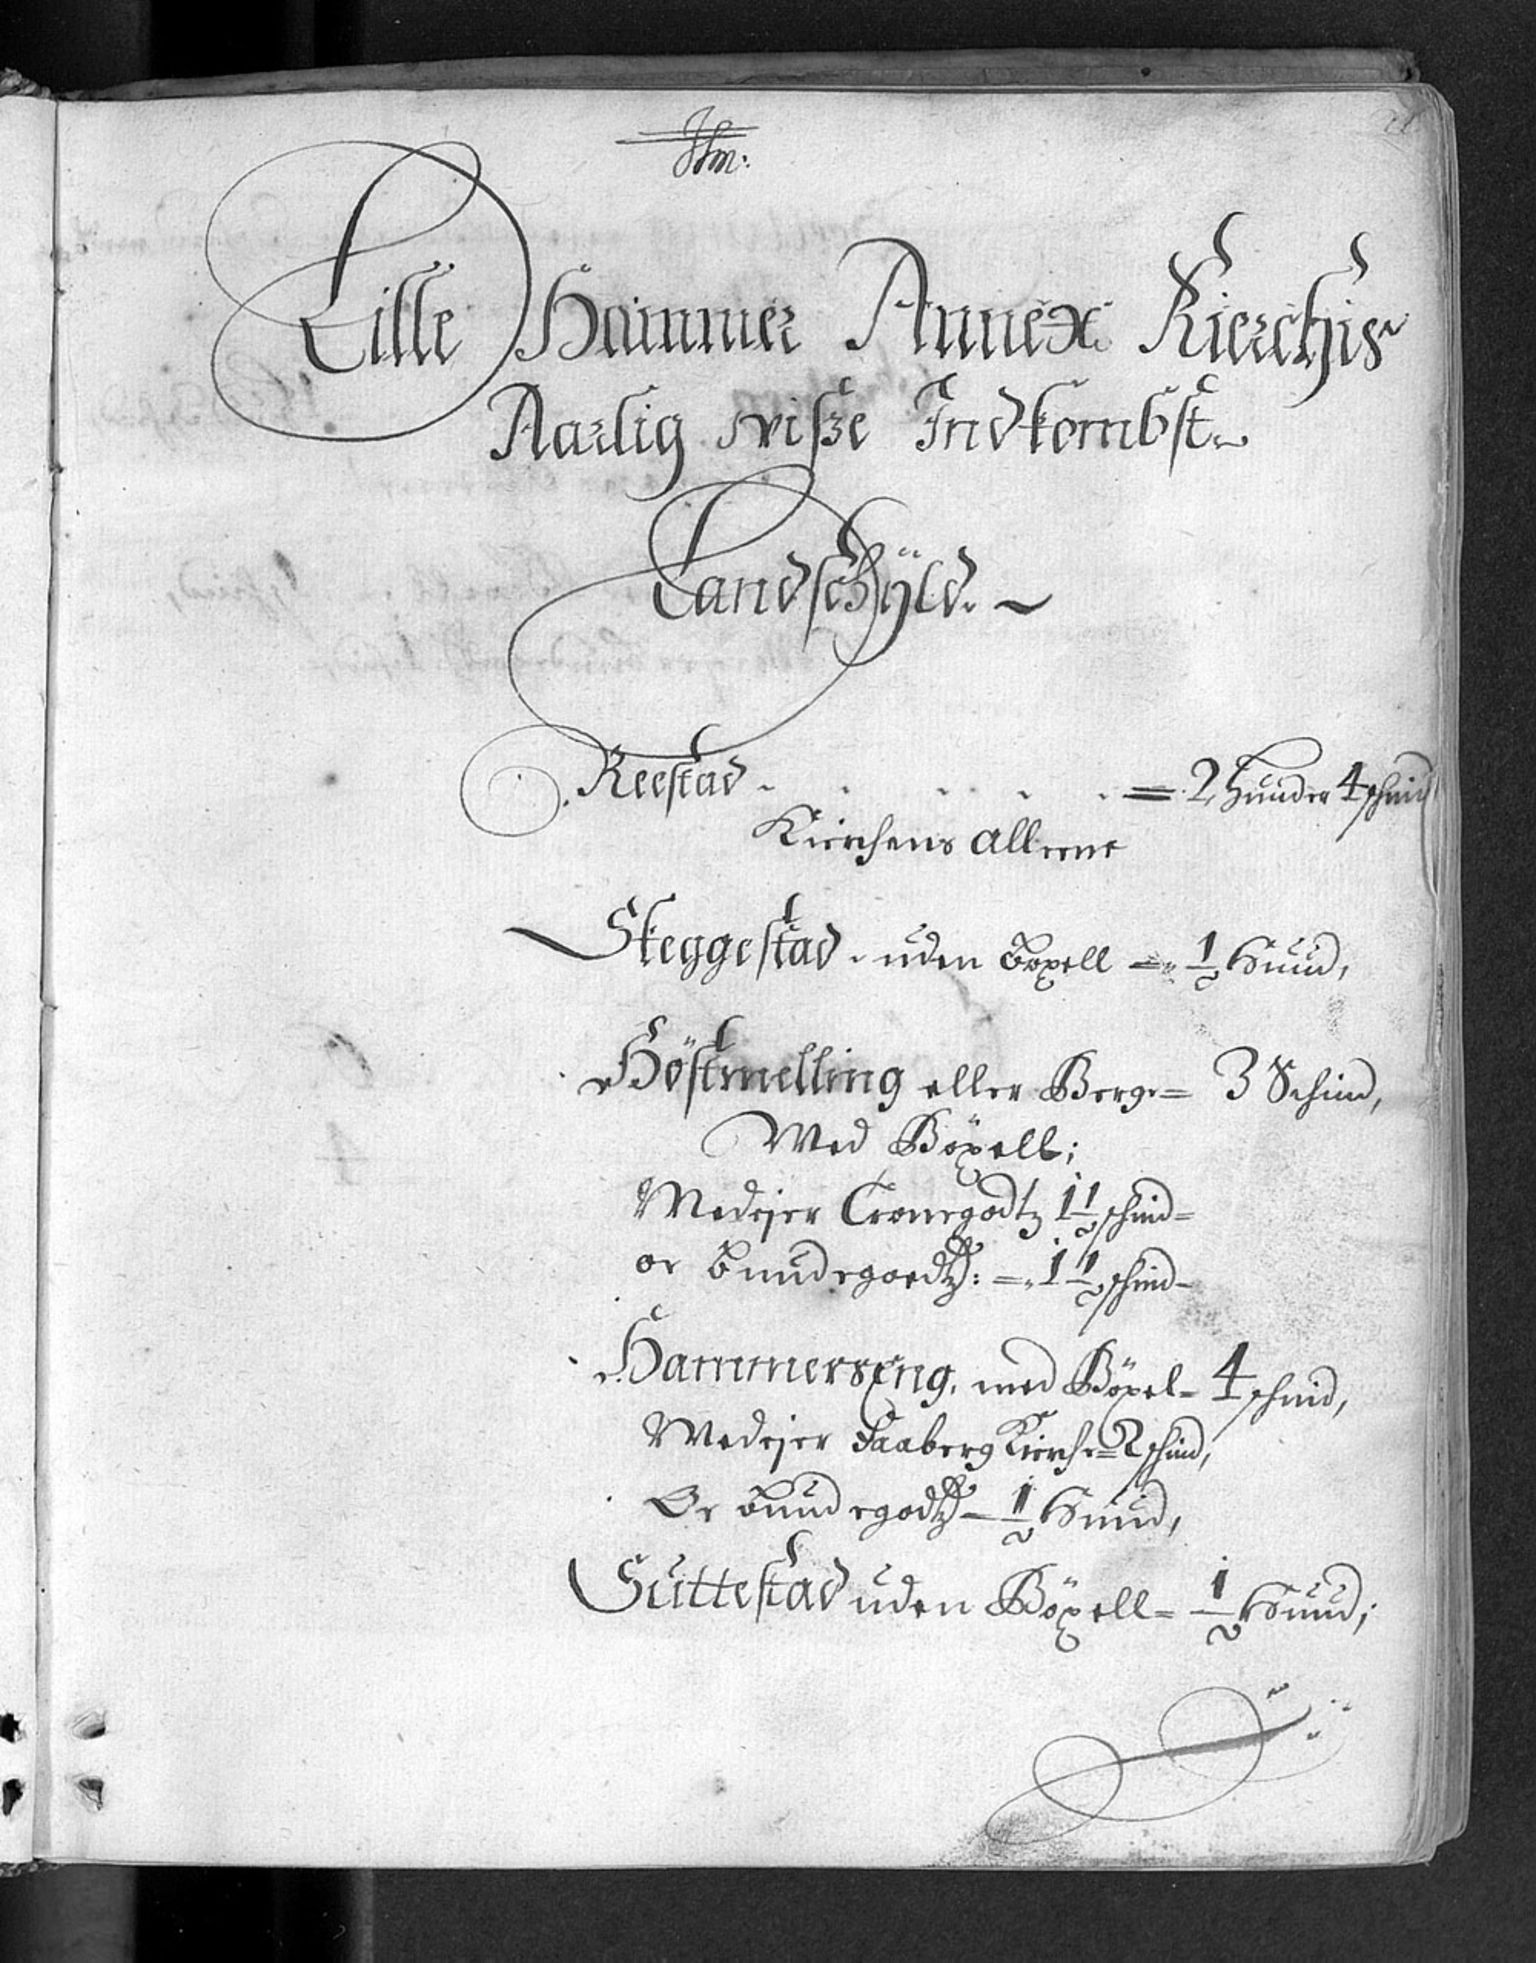 Lille Hammer Annex Kierchis
Aarlig visze Indkombst
Landschÿld.
Reestad . . . . . = 2 Hunder 4 schind
Kierchens alleene
Skeggestad. uden böxell = ½ Huud,
Höstmelling eller Berg = 3 Schind,
Med Böxell;
Medejer Cronegodtz 1½ schind =
oc bundegoedtz: = 1½ schind
Hammerseng, med Böxel = 4 schind,
Medejer Faaberg Kirche = 2 schind,
Oc bundegodtz = ½ Huud,
Suttestad uden Böxell = ½ Huud;